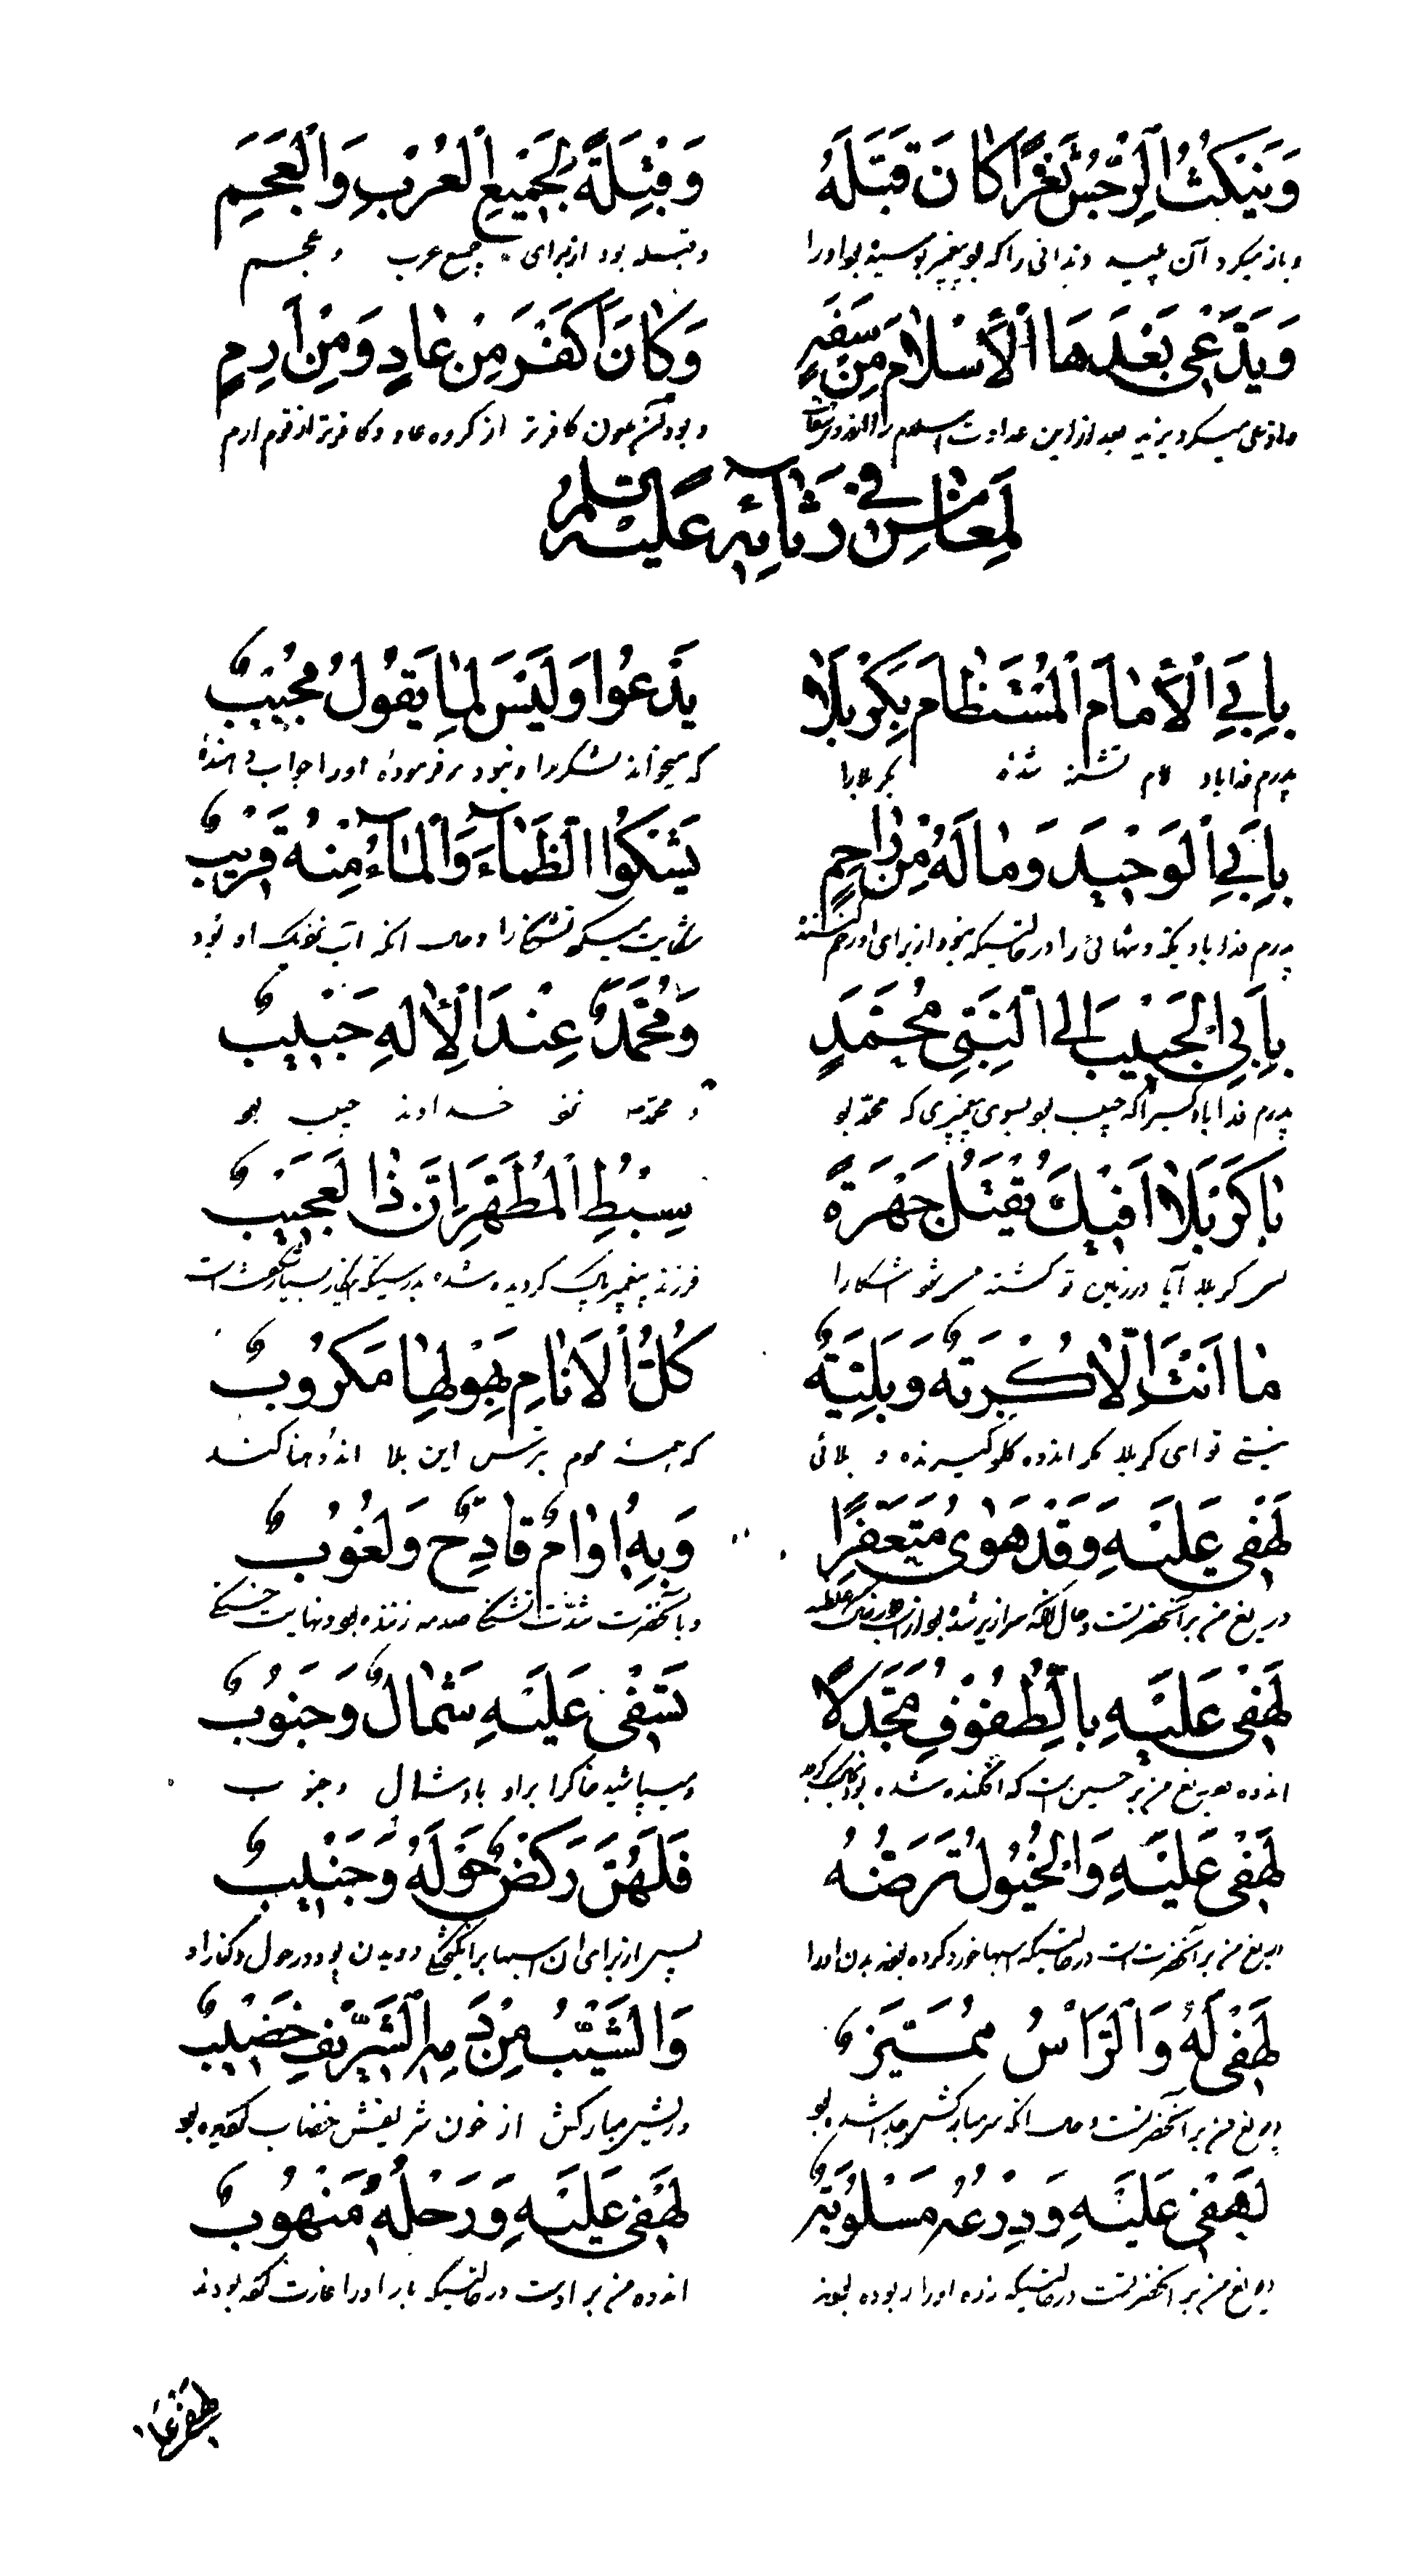 وَيَنْكُثُ الرِّجْسُ ثَغْرًا كَانَ قَبَّلَهُ وَقِبْلَةً لِجَمِيعِ الْعُرْبِ وَالْعَجَمِ
و باز میکرد آن پلید دندانی را که بود پیغمبر بوسیده بود او را و قبله بود از برای جمیع عرب و عجم
وَيَدَّعِي بَعْدَهَا الْأِسْلَامَ مِنْ سَفَهٍ وَكَانَ أَكْفَرَ مِنْ عَادٍ وَمِنْ إِرِمٍ
میکرد یزید بعد از این عداوت اسلام را و بود آن ملعون کافرتر از گروه عاد و کافرتر از قوم ارم
لِمَغَامِسَ فِي رِثَائِهِ عَلَيْهِ السَّلَامُ
بِأَبِي الْأِمَامَ الْمُسْتَظَامَ بِكَرْبَلَا يَدْعُوا وَلَيْسَ لِمَا يَقُولُ مُجِيبٌ
پدرم فدا باد امام تشنه شده بکربلا را که میخواند لشکر را و نبود مر فرموده او را جواب دهنده
بِأَبِي الْوَحِيدَ وَمَا لَهُ مِنْ رَاحِمٍ يَشْكُوا الظَّمَاءَ وَالْمَاءُ مِنْهُ قَرِيبٌ
پدرم فدا باد یکه و تنهائی را در حالتیکه نبود از برای او رحم کننده شکایت میکرد تشنگی را و حال آنکه آب نزدیک او بود
بِأَبِي الْحَبِيبَ إِلَى النَّبِيِّ مُحَمَّدٍ وَمُحَمَّدٌ عِنْدَ الْأِلٰهِ حَبِيبٌ
پدرم فدا باد کسیرا که حبیب بود بسوی پیغمبری که محمد بود و محمد نزد خداوند حبیب بود
يَا كَرْبَلَا أَفِيكَ يُقْتَلُ جَهْرَةً سِبْطُ الْمُطَهَّرِ إِنَّ ذَا لَعَجِيبٌ
ای کربلا آیا در زمین تو کشته میشود آشکارا فرزند پیغمبر پاک گردیده شده بدرستیکه این کار بسیار شگفت است
مَا أَنْتَ إِلَّا كُرْبَةٌ وَبَلِيَّةٌ كُلُّ الْأَنَامِ بِهَوْلِهَا مَكْرُوبٌ
نیستی تو ای کربلا مگر اندوه گلوگیرنده و بلائی که همه مردم بترس این بلا اندوهناکند
لَهْفِي عَلَيْهِ وَقَدْ هَوَى مُتَعَفِّرًا وَبِهِ أُوَامٌ فَادِحٌ وَلُغُوبٌ
دریغ من بر آنحضرتست و حال آنکه سرازیر شده بود از اسب و بآنحضرت شدت تشنگی صدمه زننده بود و نهایت خستگی
لَهْفِي عَلَيْهِ بِالطُّفُوفِ مُجَدَّلًا تَسْفِي عَلَيْهِ شَمَالٌ وَجَنُوبٌ
اندوه و دریغ من بر حسین است که افکنده شده بود و میپاشید خاک را بر او باد شمال و جنوب
لَهْفِي عَلَيْهِ وَالْخُيُولُ تَرُضُّهُ فَلَهُنَّ رَكْضٌ حَوْلَهُ وَجَنِيبٌ
دریغ من بر آنحضرت است در حالتیکه اسبها خورد کرده بودند بدن او را پس از برای آن اسبها برانگیختگی و دویدن بود در حول و کنار او
لَهْفِي لَهُ وَالرَّأْسُ مُمَيَّزٌ وَالشَّيْبُ مِنْ دَمِهِ الشَّرِيفِ خَضِيبٌ
دریغ من بر آنحضرتست و حال آنکه سر مبارکش جدا شده بود و ریش مبارکش از خون شریفش خضاب گردیده بود
لَهْفِي عَلَيْهِ وَدِرْعُهُ مَسْلُوبَةٌ لَهْفِي عَلَيْهِ وَرَحْلُهُ مَنْهُوبٌ
دریغ من بر آنحضرتست در حالتیکه زره او را ربوده بودند اندوه من بر اوست در حالتیکه بار او را غارت کرده بودند
لَهْفِي عَلَى